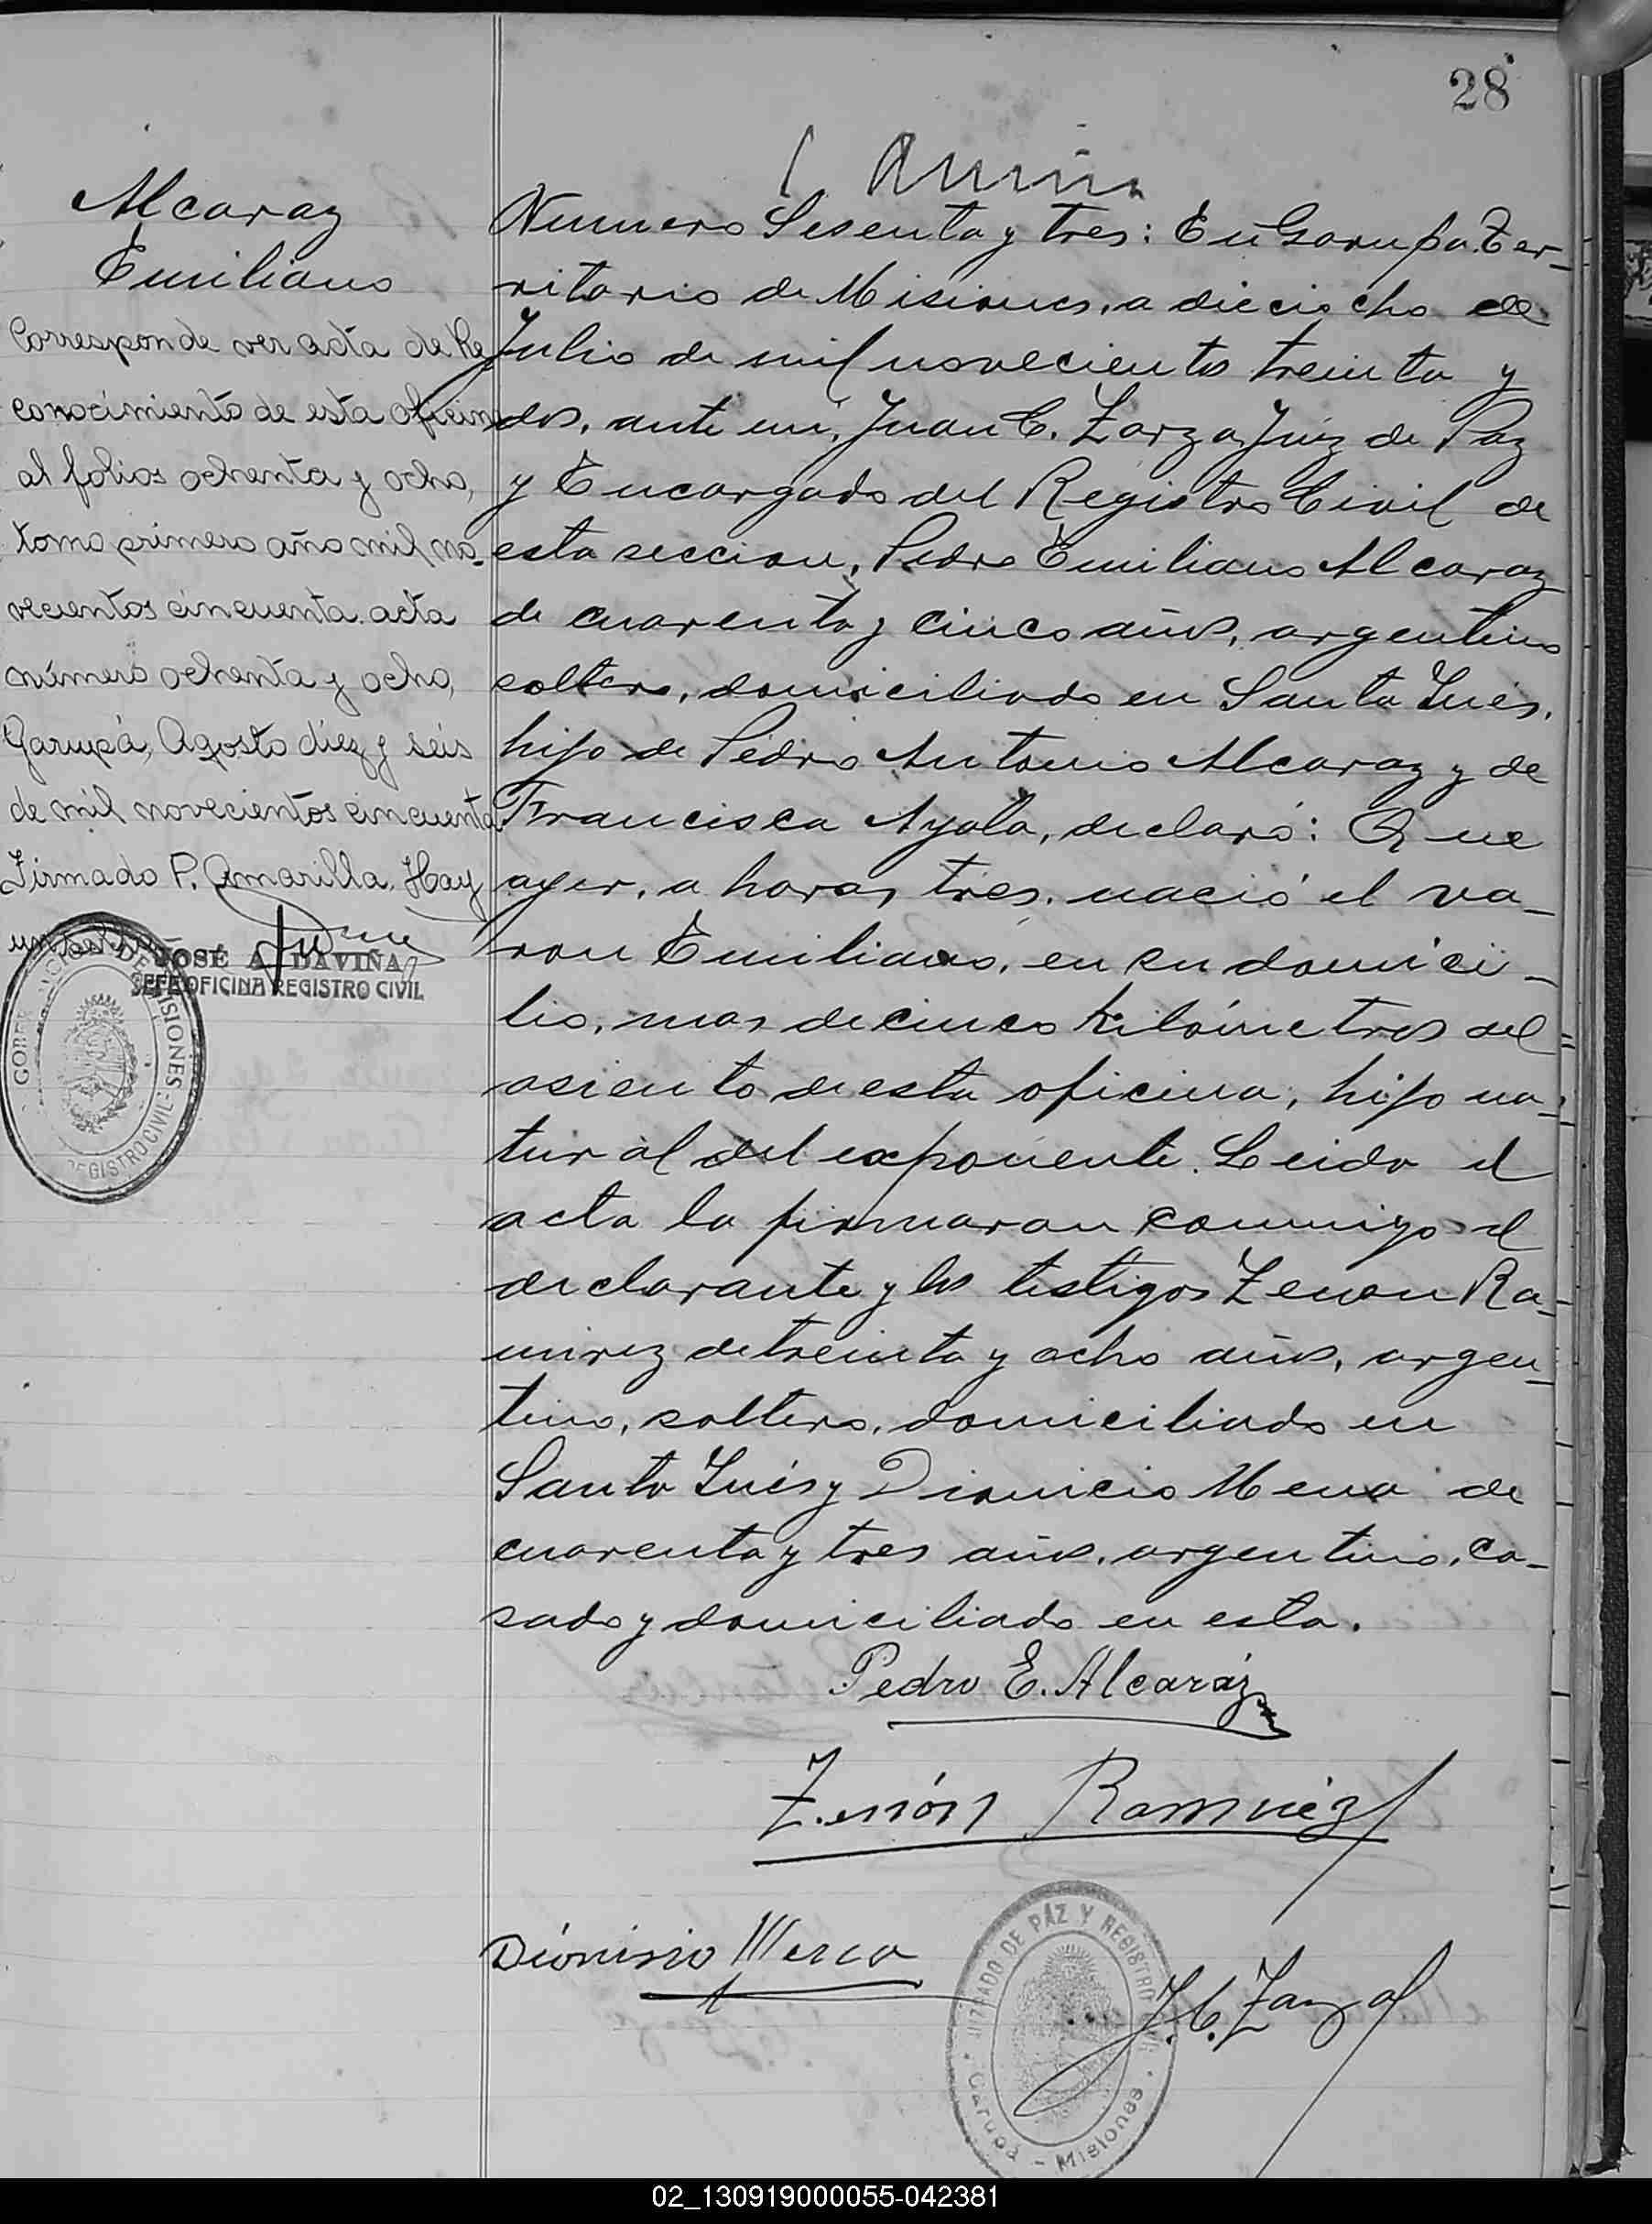 28
Alcaraz
Emiliano
Corresponde ver acta de Re
conocimiento de esta oficina
al folios ochenta y ocho,
tomo primero año mil no-
vecientos cincuenta. acta
número ochenta y ocho,
Garupá, Agosto diez y seis
de mil novecientos cincuenta
Firmado P. Amarilla. Hay
un sello
JOSÉ A. DAVIÑA
JEFE OFICINA REGISTRO CIVIL
MISIONES - REGISTRO CIVIL
Numero Sesenta y tres: En Garupa. Ter-
ritorio de Misiones, a dieciocho de
Julio de mil novecientos treinta y
dos, ante mi, Juan C. Zarza Juez de Paz
y Encargado del Registro Civil de
esta seccion, Pedro Emiliano Alcaraz
de cuarenta y cinco años, argentino
soltero, domiciliado en Santa Inés,
hijo de Pedro Antonio Alcaraz y de
Francisca Ayala, declaró: Que
ayer, a horas tres, nació el va-
ron Emiliano, en su domici-
lio, mas de cinco kilómetros del
asiento de esta oficina, hijo na-
tural del exponente. Leida el
acta la firmaron conmigo el
declarante y los testigos Zenon Ra-
mirez de treinta y ocho años, argen-
tino, soltero, domiciliado en
Santa Inés y Dionicio Mena de
cuarenta y tres años, argentino, ca-
sado y domiciliado en esta.
Pedro E. Alcaráz
Zenón Ramiréz
Dionisio Mena
J. C. Zarza
JUZGADO DE PAZ Y REGISTRO CIVIL
Garupá - Misiones
02_130919000055-042381